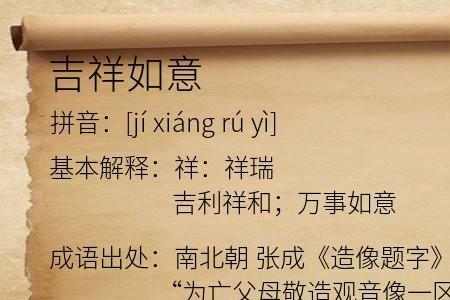 吉祥如意
拼音：[jí xiáng rú yì]
基本解释：祥：祥瑞
吉利祥和；万事如意
成语出处：南北朝 张成《造像题字》
“为亡父母敬造观音像一区